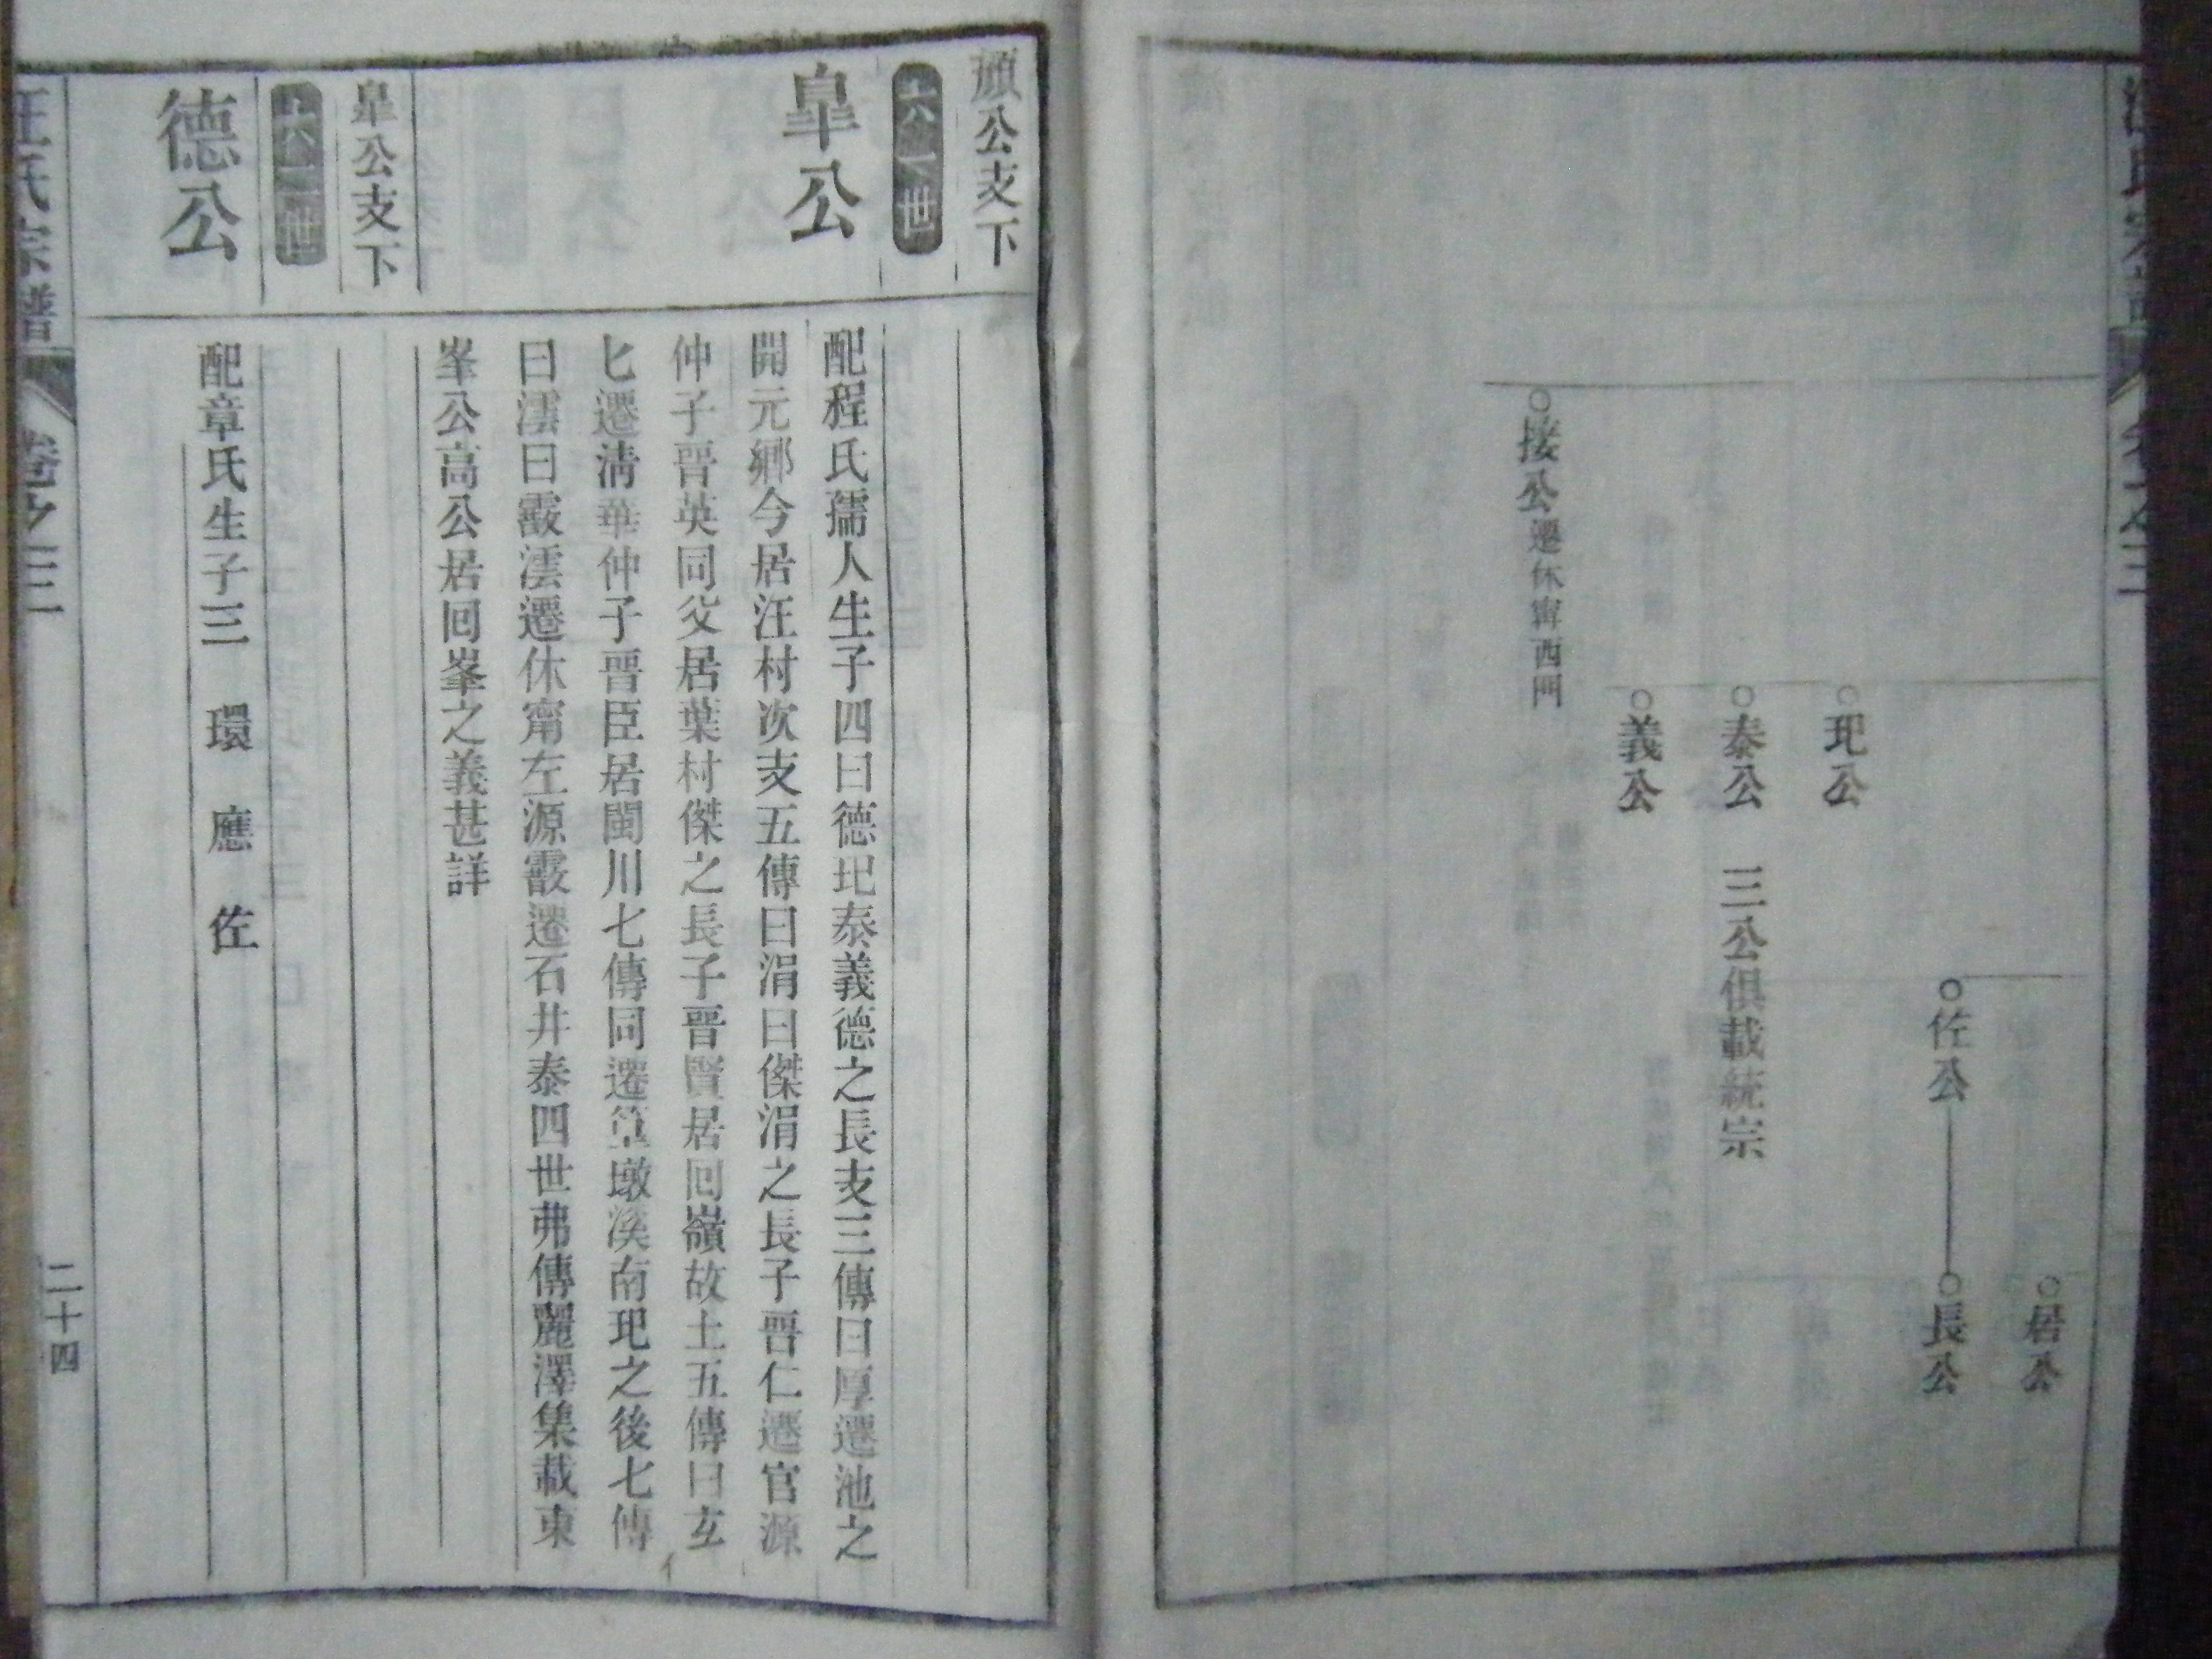 居公
佐公
長公
玘公
泰公
三公俱載統宗
義公
接公遷休甯西門
頎公支下
六十一世
皐公
配程氏孺人生子四曰德玘泰義德之長支三傳曰厚遷池之
開元鄉今居汪村次支五傳曰涓曰傑涓之長子晋仁遷官源
仲子晋英同父居葉村傑之長子晋賢居回嶺故土五傳曰玄
七遷清華仲子晋臣居閩川七傳同遷篁墩溪南玘之後七傳
曰澐曰霰澐遷休甯左源霰遷石井泰四世弗傳麗澤集載東
峯公高公居回峯之義甚詳
皐公支下
世
德公
配章氏生子三 環 應 佐
汪氏宗譜
卷之三
二十四